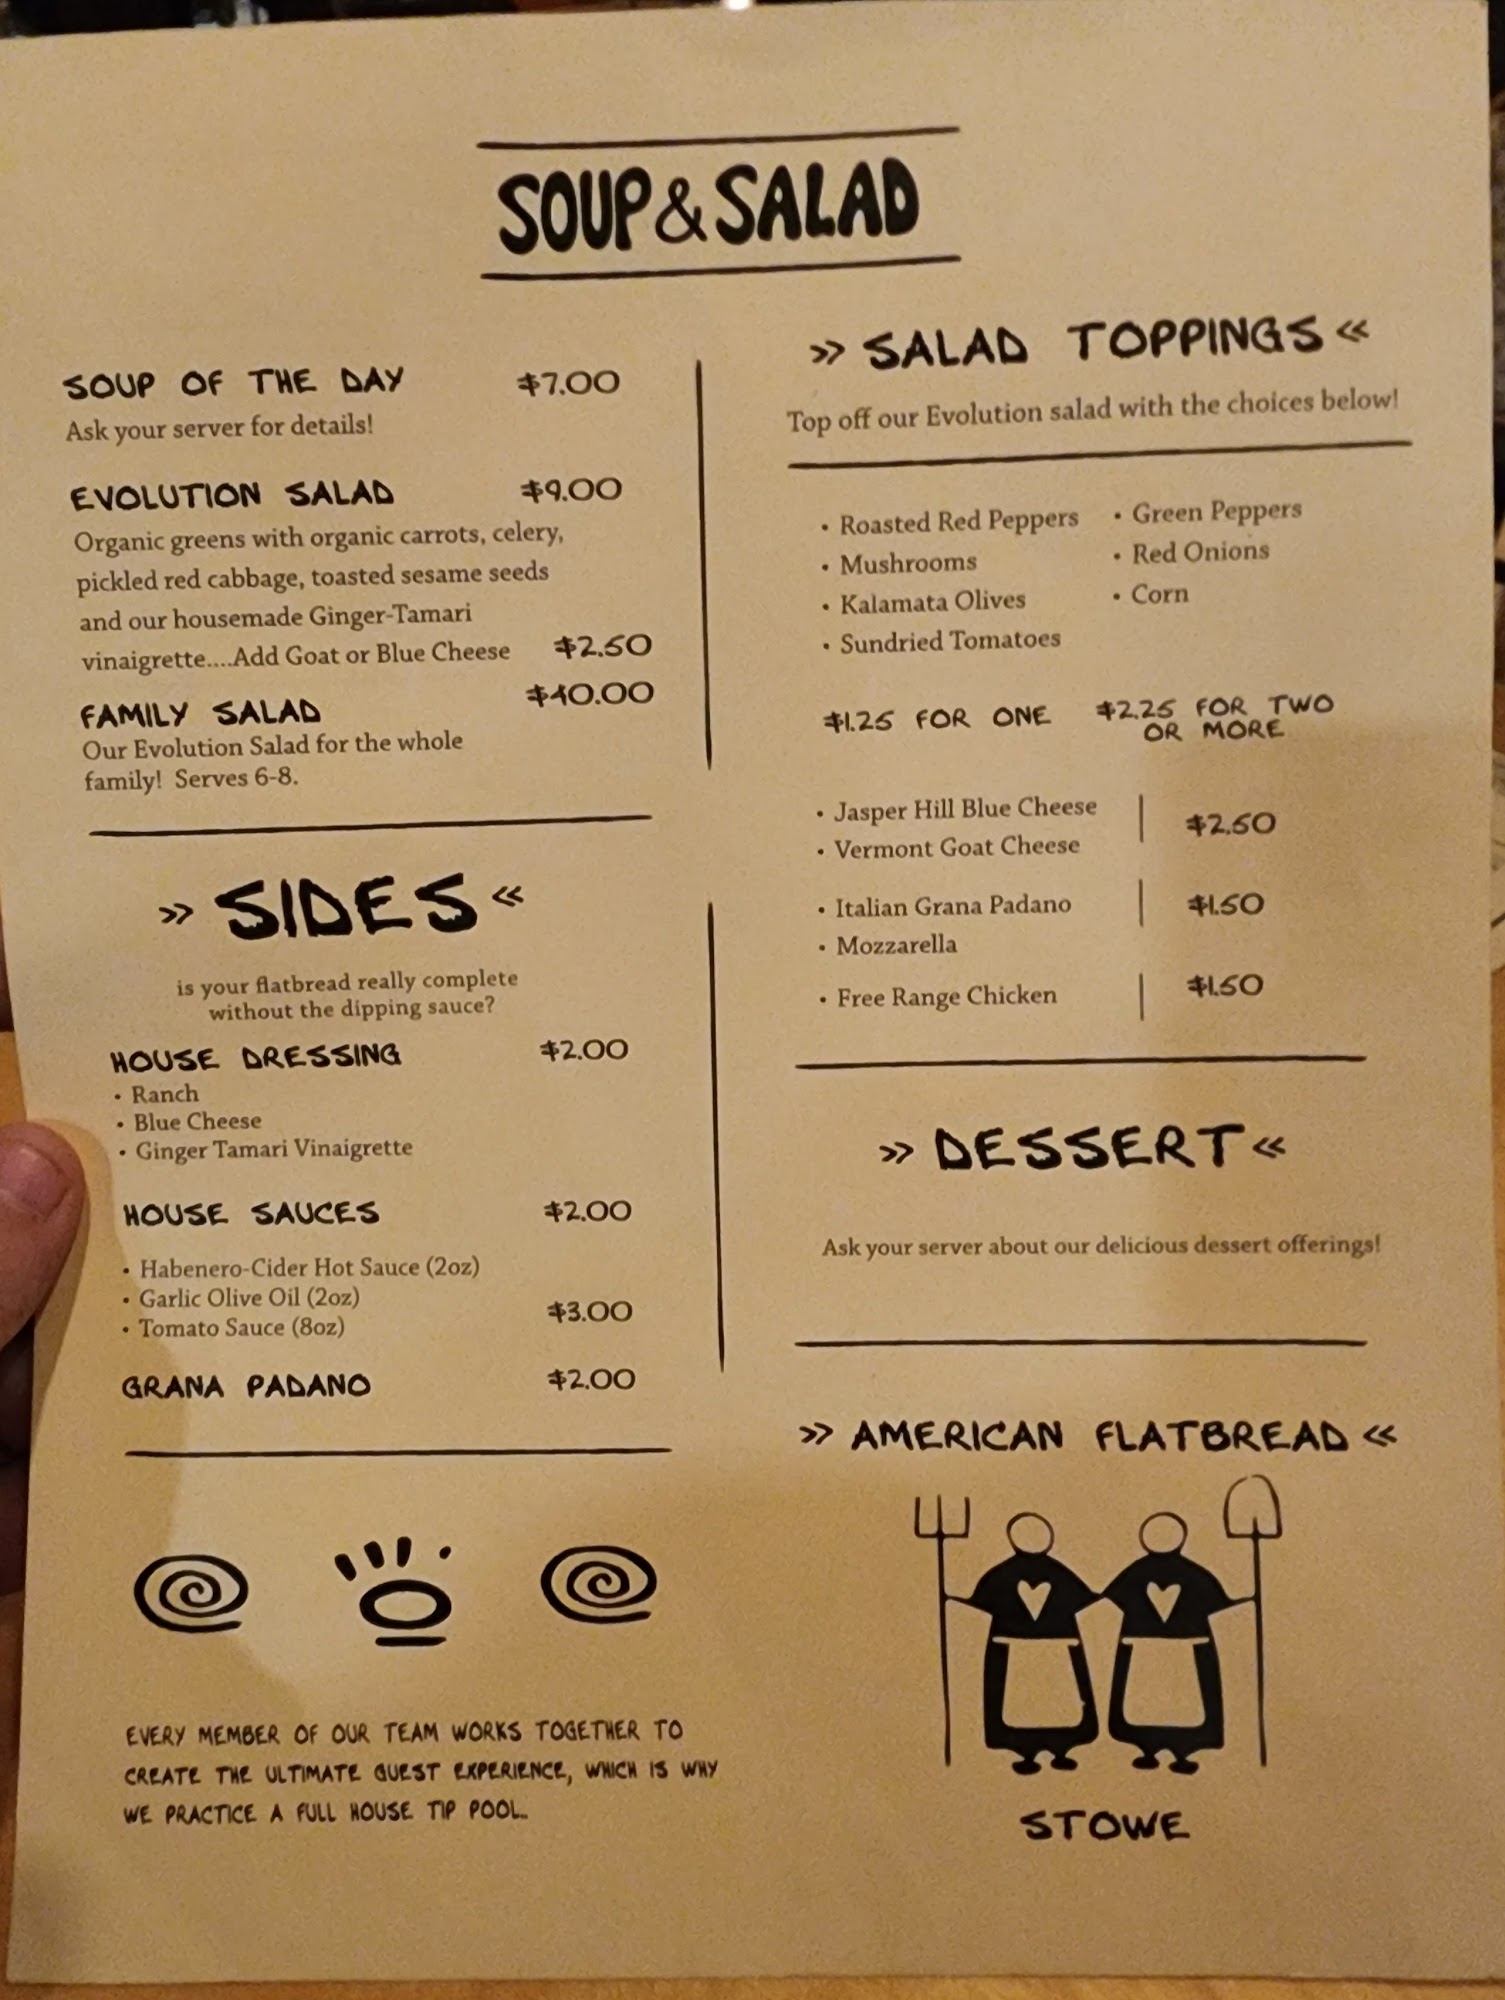 SOUP & SALAD
SOUP OF THE DAY $7.00
Ask your server for details!
EVOLUTION SALAD $9.00
Organic greens with organic carrots, celery,
pickled red cabbage, toasted sesame seeds
and our housemade Ginger-Tamari
vinaigrette....Add Goat or Blue Cheese $2.50
FAMILY SALAD $40.00
Our Evolution Salad for the whole
family! Serves 6-8.
» SIDES «
is your flatbread really complete
without the dipping sauce?
HOUSE DRESSING $2.00
• Ranch
• Blue Cheese
• Ginger Tamari Vinaigrette
HOUSE SAUCES $2.00
• Habenero-Cider Hot Sauce (2oz)
• Garlic Olive Oil (2oz)
• Tomato Sauce (8oz) $3.00
GRANA PADANO $2.00
EVERY MEMBER OF OUR TEAM WORKS TOGETHER TO
CREATE THE ULTIMATE GUEST EXPERIENCE, WHICH IS WHY
WE PRACTICE A FULL HOUSE TIP POOL..
» SALAD TOPPINGS «
Top off our Evolution salad with the choices below!
• Roasted Red Peppers • Green Peppers
• Mushrooms • Red Onions
• Kalamata Olives • Corn
• Sundried Tomatoes
$1.25 FOR ONE $2.25 FOR TWO
OR MORE
• Jasper Hill Blue Cheese | $2.50
• Vermont Goat Cheese
• Italian Grana Padano | $1.50
• Mozzarella
• Free Range Chicken | $1.50
» DESSERT «
Ask your server about our delicious dessert offerings!
» AMERICAN FLATBREAD «
STOWE